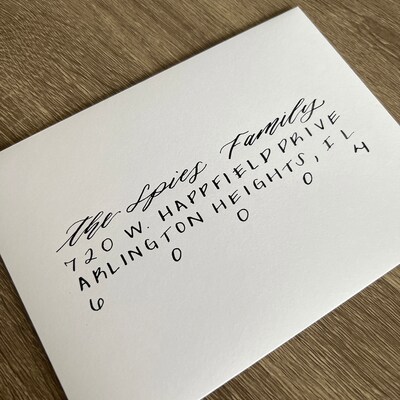 The Spies Family
720 W. HAPPFIELD DRIVE
ARLINGTON HEIGHTS, IL
6 0 0 0 4